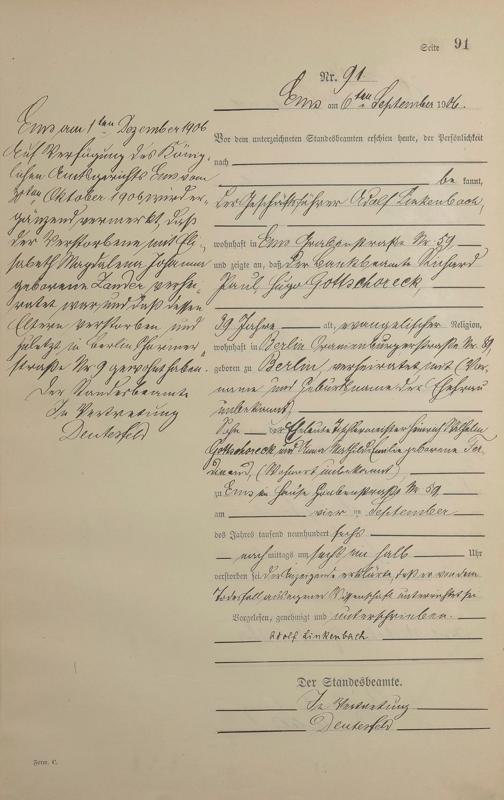 Seite 91
Nr. 91.
Ems am 6ten September 1906.
Vor dem unterzeichneten Standesbeamten erschien heute, der Persönlichkeit
nach
be kannt,
der Geschäftsführer Adolf Linkenbach,
wohnhaft in Ems Grabenstraße Nr 59
und zeigte an, daß der Bankbeamte Richard
Paul Hugo Gottschoreck,
29 Jahre alt, evangelischer Religion,
wohnhaft in Berlin Oranienburgerstraße Nr 39
geboren zu Berlin, verheiratet mit (Vor-
name und Geburtsname der Ehefrau
unbekannt)
Sohn der Eheleute Tischlermeister Heinrich Wilhelm
Gottschoreck und Anna Mathilde Emilie geborene
(Wohnort unbekannt)
zu Ems im Hause Grabenstraße Nr 59
am vier ten September
des Jahres tausend neunhundert sechs
nach mittags um sechs ein halb Uhr
verstorben sei. Der Anzeigende erklärte, daß er von dem
Todesfall aus eigener Wissenschaft unterrichtet sei
Vorgelesen, genehmigt und unterschrieben.
Adolf Linkenbach
Der Standesbeamte.
In Vertretung
Deutesfeld
Ems am 1ten Dezember 1906
Auf Verfügung des König-
lichen Amtsgerichts Ems vom
Oktober 1906 wird er-
gänzend vermerkt, daß
der Verstorbene mit Eli-
sabeth Magdalena Johanna
geborene Lander verhei-
ratet war und daß dessen
Eltern verstorben und
zuletzt in Berlin
straße Nr 9 gewohnt haben.
Der Standesbeamte
In Vertretung
Deutesfeld
Form. C.